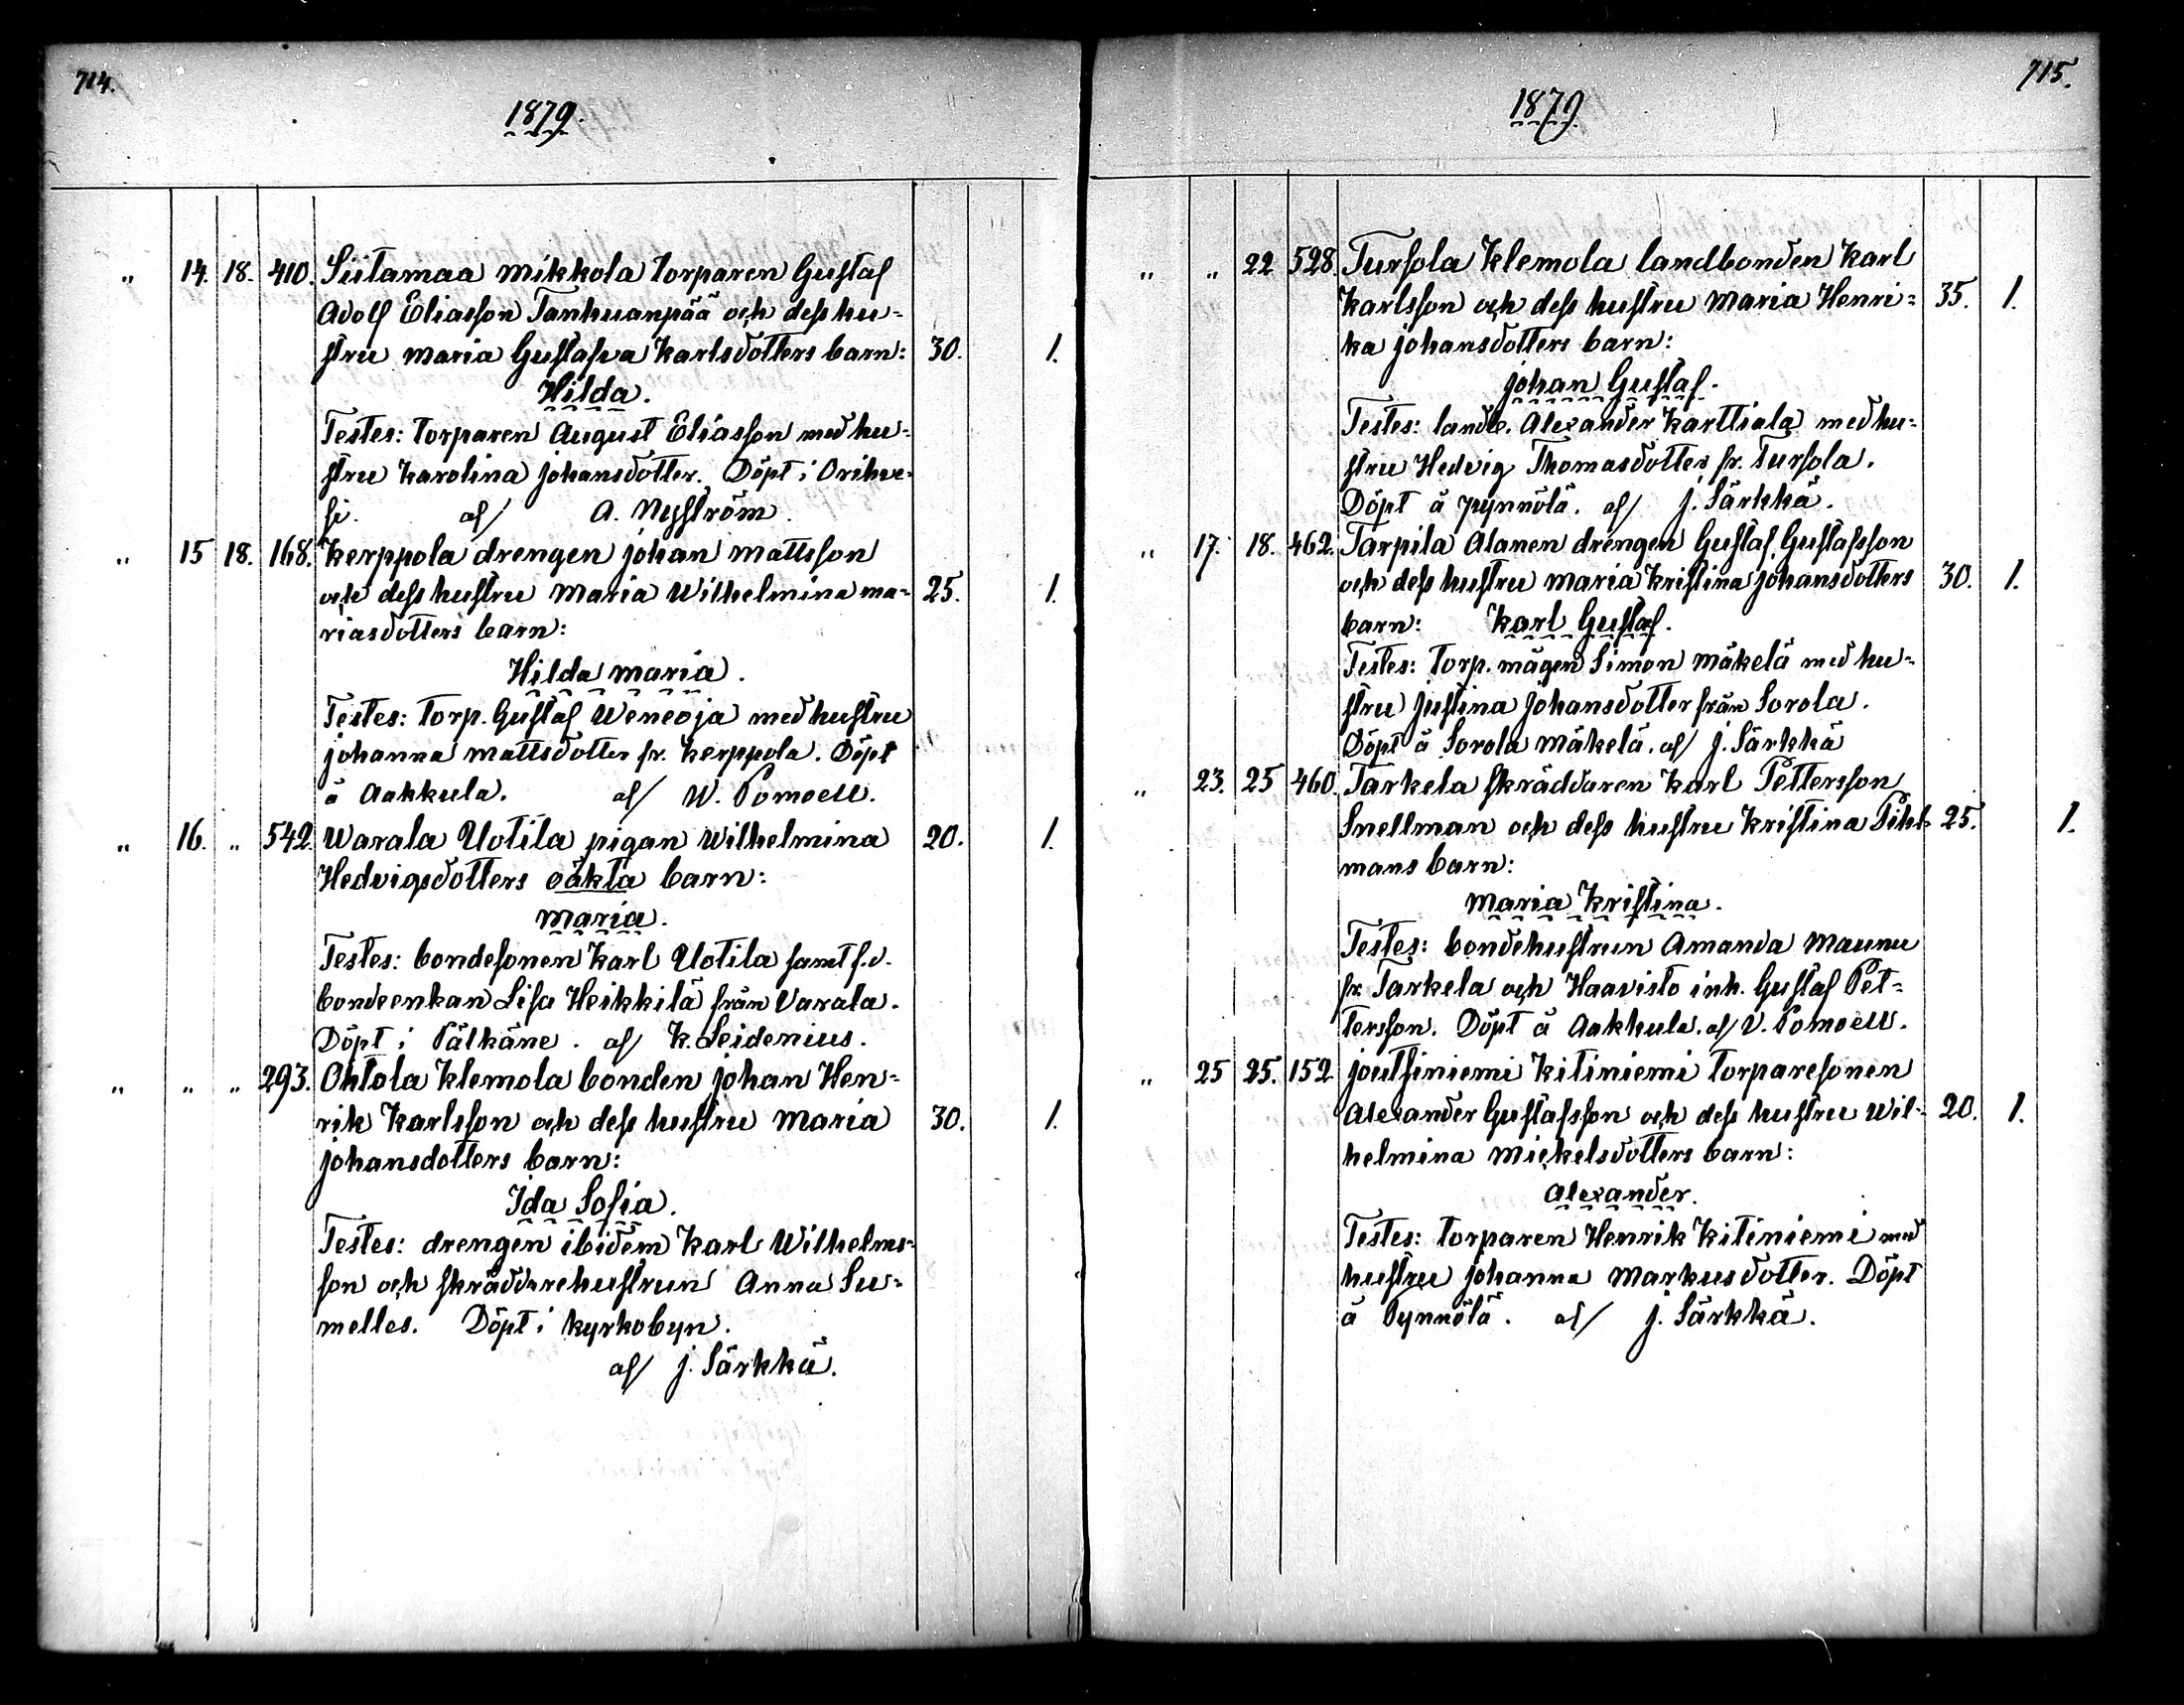 714.
1879.
" 14. 18. 410. Siitamaa Mikkola torparen Gustaf
Adolf Eliasson Tanhuanpää och dess hu-
stru Maria Gustafva Karlsdotters barn: 30. 1.
Hilda.
Testes: torparen August Eliasson med hu-
stru Karolina Johansdotter. Döpt i Orihve-
si. af/ A. Nyström.
" 15 18. 168. Kerppola drengen Johan Mattsson
och dess hustru Maria Wilhelmina Ma- 25. 1.
riasdotters barn:
Hilda Maria.
Testes: torp. Gustaf Weneoja med hustru
Johanna Mattsdotter fr. Kerppola. Döpt
å Aakkula. af/ W. Pomoell.
" 16. " 542. Warala Uotila pigan Wilhelmina 20. 1.
Hedvigsdotters oäkta barn:
Maria.
Testes: bondesonen Karl Uotila samt f.d.
bondeenkan Lisa Heikkilä från Varala.
Döpt i Pälkäne. af/ K. Leidenius.
" " " 293. Ohtola Klemola bonden Johan Hen-
rik Karlsson och dess hustru Maria 30. 1.
Johansdotters barn:
Ida Sofia.
Testes: drengen ibidem Karl Wilhelms-
son och skräddarehustrun Anna Su-
melles. Döpt i kyrkobyn.
af/ J. Särkkä.
715.
1879.
" " 22 528. Tursola Klemola landbonden Karl
Karlsson och dess hustru Maria Henri- 35. 1.
ka Johansdotters barn:
Johan Gustaf.
Testes: landb. Alexander Karttiala med hu-
stru Hedvig Thomasdotter fr. Tursola.
Döpt å Pynnölä. af/ J. Särkkä.
" 17. 18. 462. Tarpila Alanen drengen Gustaf Gustafsson
och dess hustru Maria Kristina Johansdotters 30. 1.
barn: Karl Gustaf.
Testes: torp. mågen Simon Mäkelä med hu-
stru Justina Johansdotter från Sorola.
Döpt å Sorola Mäkelä. af/ J. Särkkä
" 23. 25 460. Tarkela skräddaren Karl Pettersson
Snellman och dess hustru Kristina Pihl- 25. 1.
mans barn:
Maria Kristina.
Testes: bondehustrun Amanda Maunu
fr. Tarkela och Haavisto inh. Gustaf Pet-
tersson. Döpt å Aakkula. af/ V. Pomoell.
" 25 25. 152 Joutsiniemi Kitiniemi torparesonen
Alexander Gustafsson och dess hustru Wil- 20. 1.
helmina Mickelsdotters barn:
Alexander.
Testes: torparen Henrik Kitiniemi med
hustru Johanna Markusdotter. Döpt
å Pynnölä. af/ J. Särkkä.